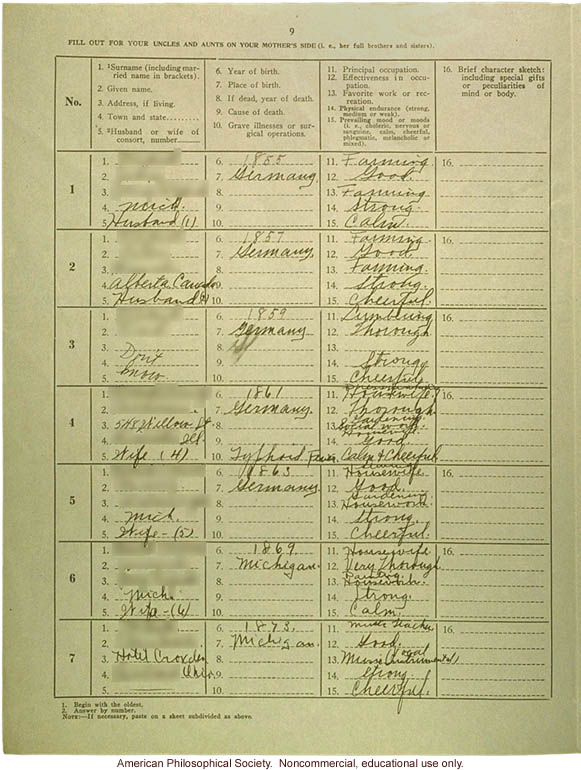 9
FILL OUT FOR YOUR UNCLES AND AUNTS ON YOUR MOTHER'S SIDE (i. e., her full brothers and sisters).
No.
1. ¹Surname (including married name in brackets).
2. Given name.
3. Address, if living.
4. Town and state.........
5. ²Husband or wife of consort, number
6. Year of birth.
7. Place of birth.
8. If dead, year of death.
9. Cause of death.
10. Grave illnesses or surgical operations.
11. Principal occupation.
12. Effectiveness in occupation.
13. Favorite work or recreation.
14. Physical endurance (strong, medium or weak).
15. Prevailing mood or moods (i. e., choleric, nervous or sanguine, calm, cheerful, phlegmatic, melancholic or mixed).
16. Brief character sketch: including special gifts or peculiarities of mind or body.
1
1.
2.
3.
4. Mich.
5. Husband (1)
6. 1855
7. Germany
8.
9.
10.
11. Farming
12. Good
13. Farming
14. Strong
15. Calm
16.
2
1.
2.
3.
4. Alberta
5. Husband
6. 1857
7. Germany
8.
9.
10.
11. Farming
12. Good
13. Farming
14. Strong
15. Cheerful
16.
3
1.
2.
3. Don't
4. know
5.
6. 1859
7. Germany
8.
9.
10.
11. Lumbering
12. Thorough
13.
14. Strong
15. Cheerful
16.
4
1.
2.
3. 548 Willow St
4. Ill.
5. Wife (4)
6. 1861
7. Germany
8.
9.
10. Typhoid Fever
11. Housewife
12. Thorough
Gardening
13. Social work
Housewife
14. Good
15. Calm & Cheerful
16.
5
1.
2.
3.
4. Mich.
5. Wife - (5)
6. 1863
7. Germany
8.
9.
10.
11. Housewife
12. Good
Gardening
13. Housework
14. Strong
15. Cheerful
16.
6
1.
2.
3.
4. Mich.
5. Wife - (6)
6. 1869
7. Michigan
8.
9.
10.
11. Housewife
12. Very Thorough
13. Housework
14. Strong
15. Calm
16.
7
1.
2.
3. Hotel
4. Ohio
5.
6. 1873
7. Michigan
8.
9.
10.
11. Music Teacher
12. Good
Vocal
13. Music (Instrumental)
14. Strong
15. Cheerful
16.
1. Begin with the oldest.
2. Answer by number.
NOTE:—If necessary, paste on a sheet subdivided as above.
American Philosophical Society. Noncommercial, educational use only.